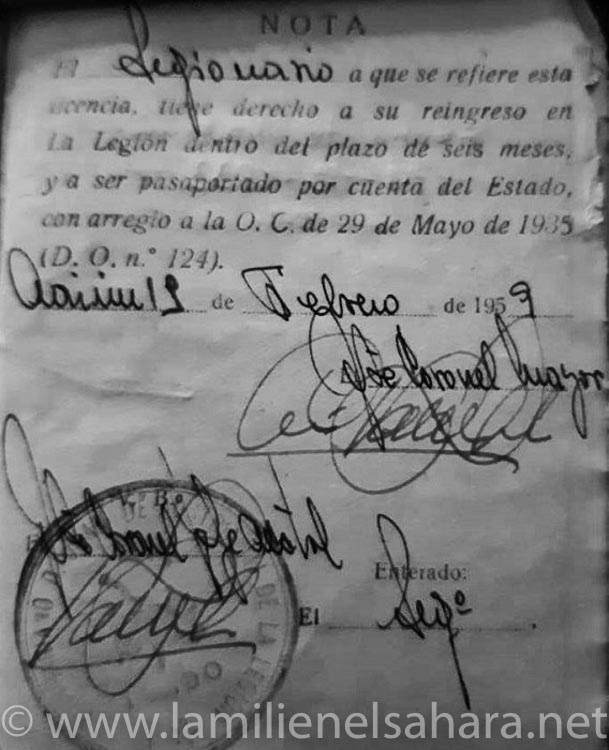 NOTA
El Legionario a que se refiere esta
licencia, tiene derecho a su reingreso en
La Legión dentro del plazo de seis meses,
y a ser pasaportado por cuenta del Estado,
con arreglo a la O. C. de 29 de Mayo de 1935
(D. O. n.º 124).
Aaiun 19 de Febrero de 1959
Coronel Mayor
V.º B.º
Enterado:
El Legº
DE LA LEGION
© www.lamilienelsahara.net